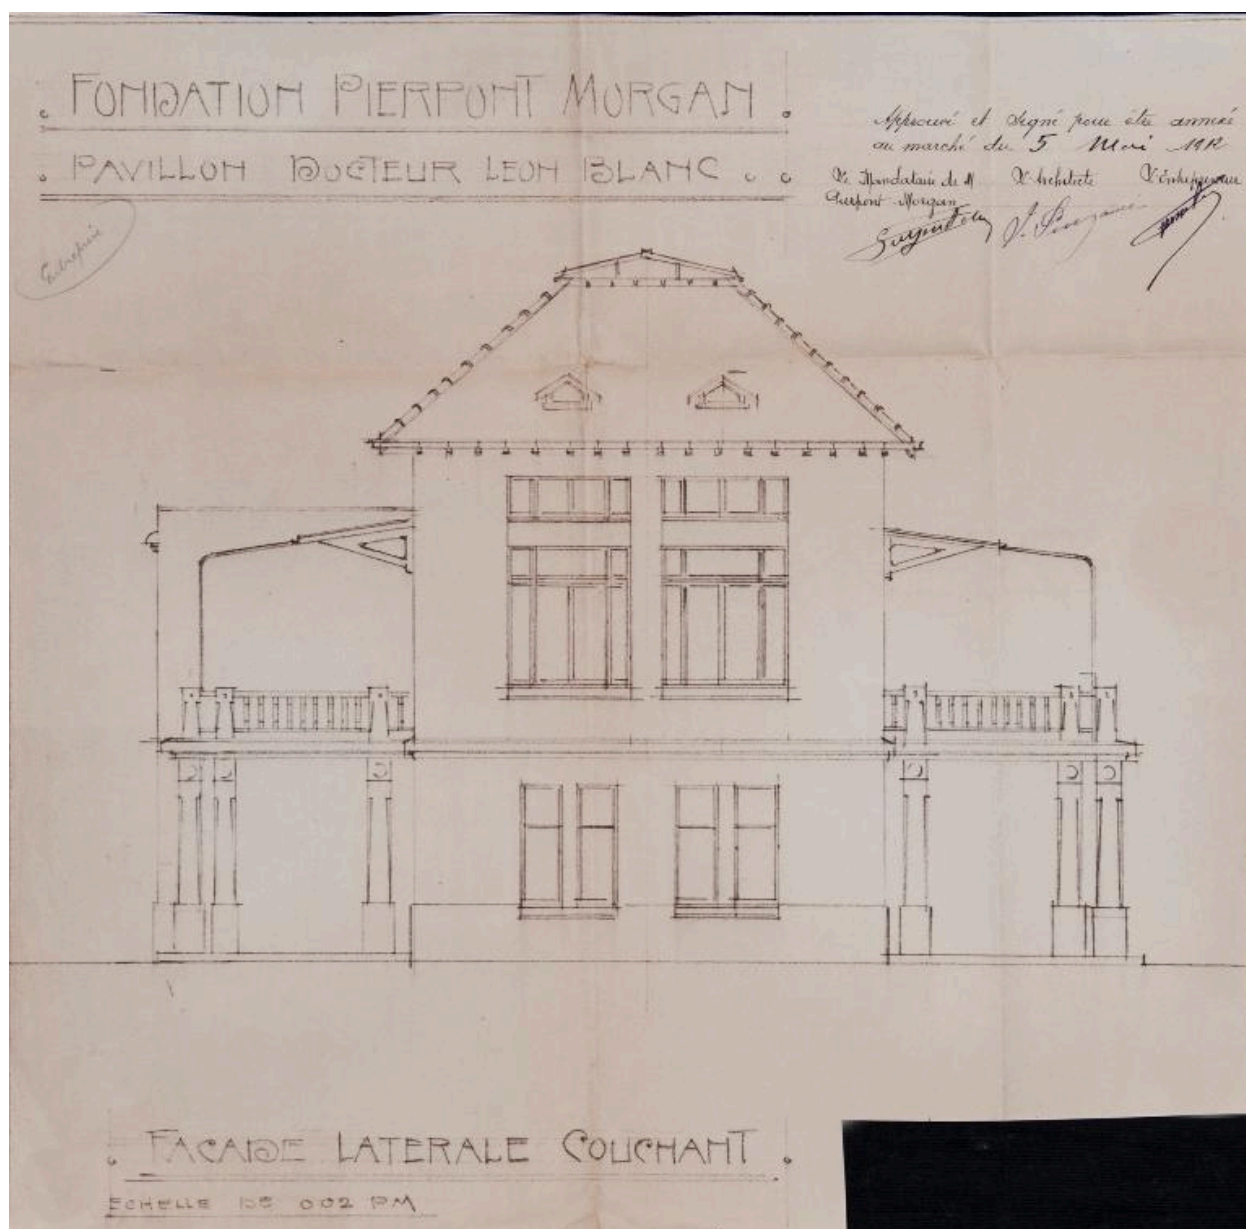 FONDATION PIERPONT MORGAN
PAVILLON DOCTEUR LEON BLANC
Approuvé et signé pour être annexé
au marché du 5 Mai 1912
Le Mandataire de M
Pierpont Morgan
L'Architecte
L'Entrepreneur
FACADE LATERALE COUCHANT
ECHELLE DE 002 PM